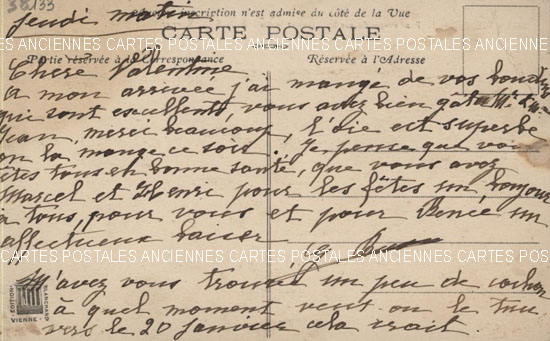 38133
Jeudi matin
inscription n'est admise du côté de la Vue
CARTE POSTALE
Partie réservée à la Correspondance
Réservée à l'Adresse
Chère Valentine
A mon arrivée j'ai mangé de vos boudins
qui sont excellents, vous avez bien gâté
Jean, merci beaucoup, l'oie est superbe
on la mange ce soir. Je pense que vous
êtes tous en bonne santé, que vous avez
Marcel et Henri pour les fêtes un bonjour
à tous, pour vous et pour Renée un
affectueux baiser
CARTES POSTALES ANCIENNES CARTES POSTALES ANCIENNES CARTES POSTALES ANCIENNES
M'avez vous trouvé un peu de cochon
à quel moment veut on le tuer
vers le 20 Janvier cela irait.
EDITION
BLANCHARD
VIENNE